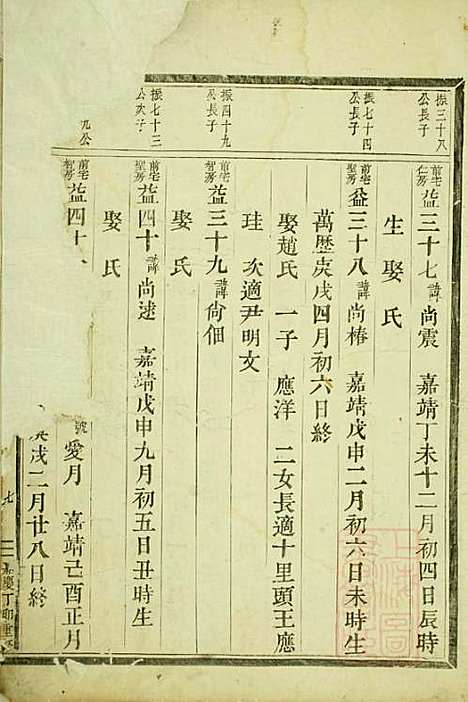 振三十八公長子
前宅仁房益三十七諱尚震 嘉靖丁未十二月初四日辰時
生娶氏
振七十四公長子
前宅聖房益三十八諱尚椿 嘉靖戊申二月初六日未時
萬歷庚戌四月初六日終
娶趙氏 一子 應洋 二女長適十里頭王應
珪 次適尹明文
振四十九公長子
前宅智房益三十九諱尚佃
娶氏
振七十三公次子
前宅聖房益四十諱尚逮 嘉靖戊申九月初五日丑時生
娶氏
九公
前宅智房益四十
號愛月 嘉靖己酉正月
戌二月廿八日終
七
嘉慶丁卯重